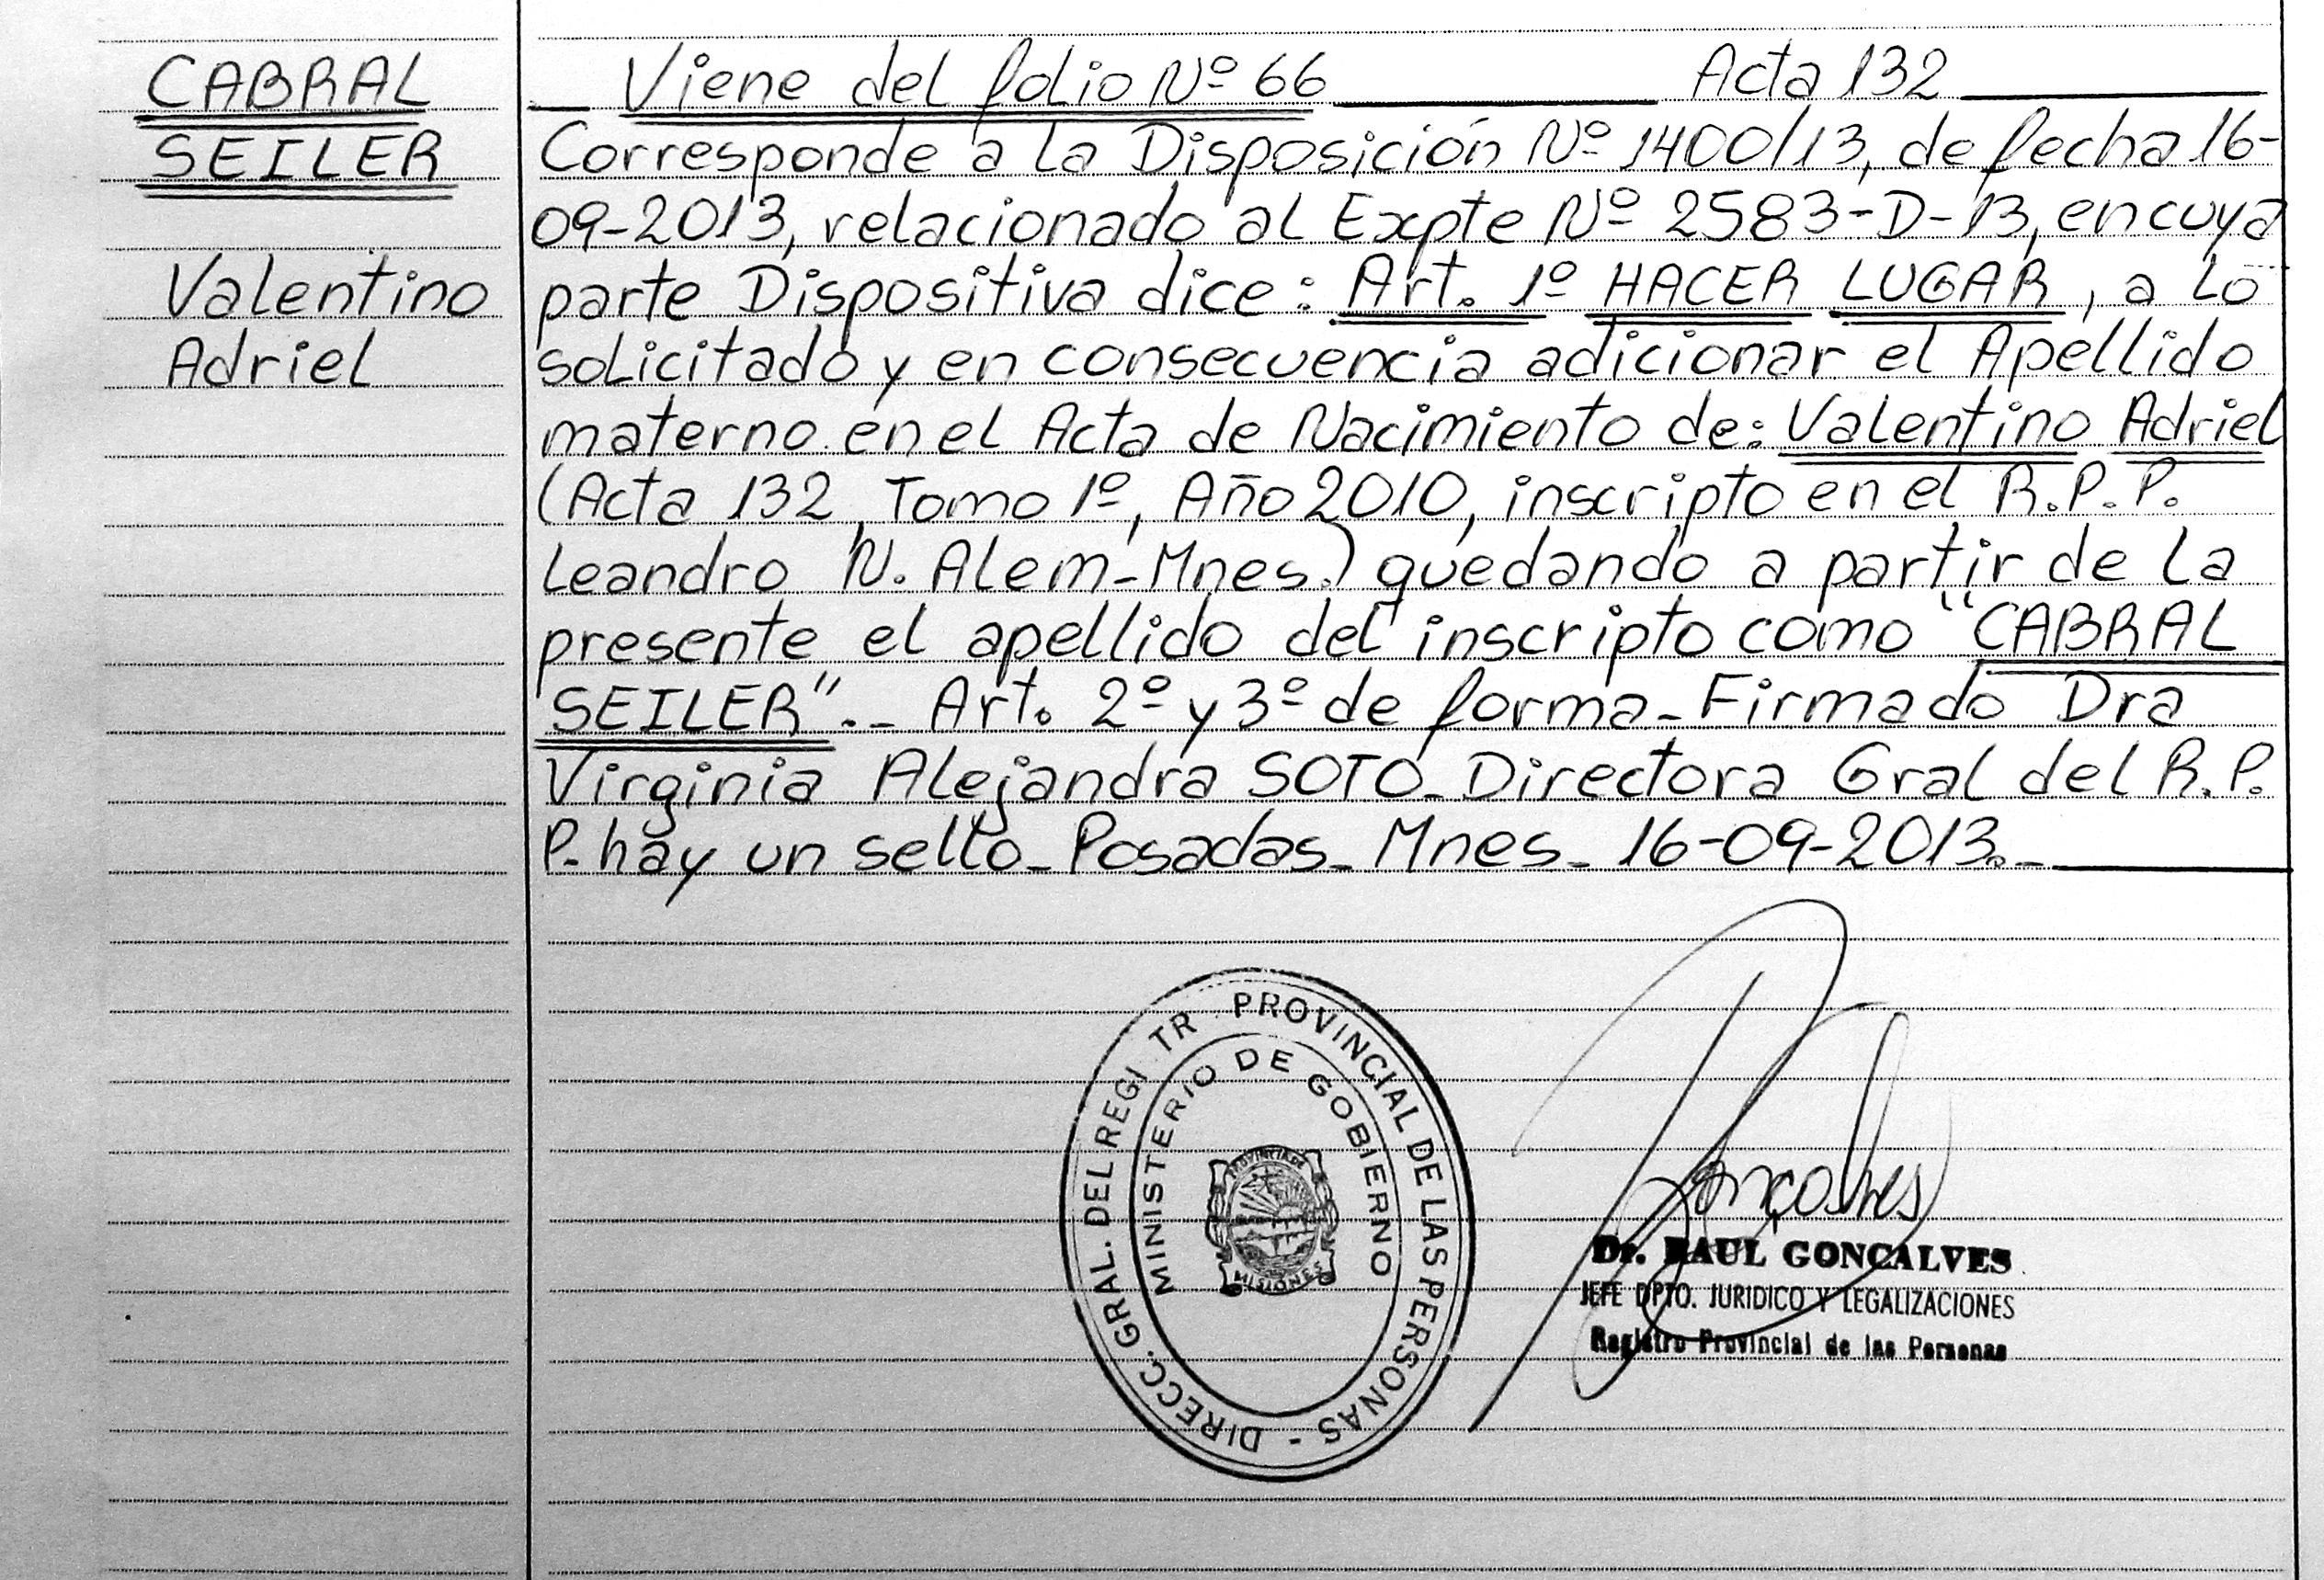 CABRAL
SEILER
Valentino
Adriel
Viene del folio Nº 66 Acta 132
Corresponde a la Disposición Nº 1400/13, de fecha 16-
09-2013, relacionado al Expte Nº 2583-D-13, en cuya
parte Dispositiva dice: Art. 1º HACER LUGAR, a lo
solicitado y en consecuencia adicionar el Apellido
materno en el Acta de Nacimiento de: Valentino Adriel
(Acta 132, Tomo 1º, Año 2010, inscripto en el R.P.P.
Leandro N. Alem-Mnes.) quedando a partir de la
presente el apellido del inscripto como "CABRAL
SEILER".- Art. 2º y 3º de forma-Firmado Dra
Virginia Alejandra SOTO-Directora Gral del R.P.
P-hay un sello-Posadas-Mnes-16-09-2013.-
DIRECC. GRAL. DEL REGI TR PROVINCIAL DE LAS PERSONAS -
MINISTERIO DE GOBIERNO
PROVINCIA DE
MISIONES
Gonçalves
Dr. RAUL GONCALVES
JEFE DPTO. JURIDICO Y LEGALIZACIONES
Registro Provincial de las Personas